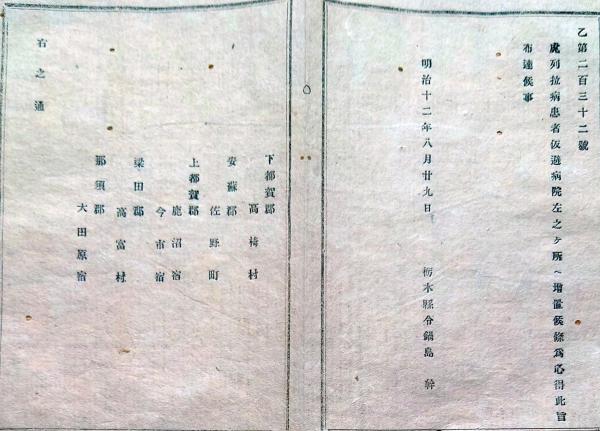 乙第二百三十二號
虎列拉病患者仮避病院左之ヶ所ヘ増置候條爲心得此旨
布達候事
明治十二年八月廿九日
栃木縣令鍋島幹
下都賀郡
高椅村
安蘇郡
佐野町
上都賀郡
鹿沼宿
今市宿
梁田郡
高富村
那須郡
大田原宿
右之通